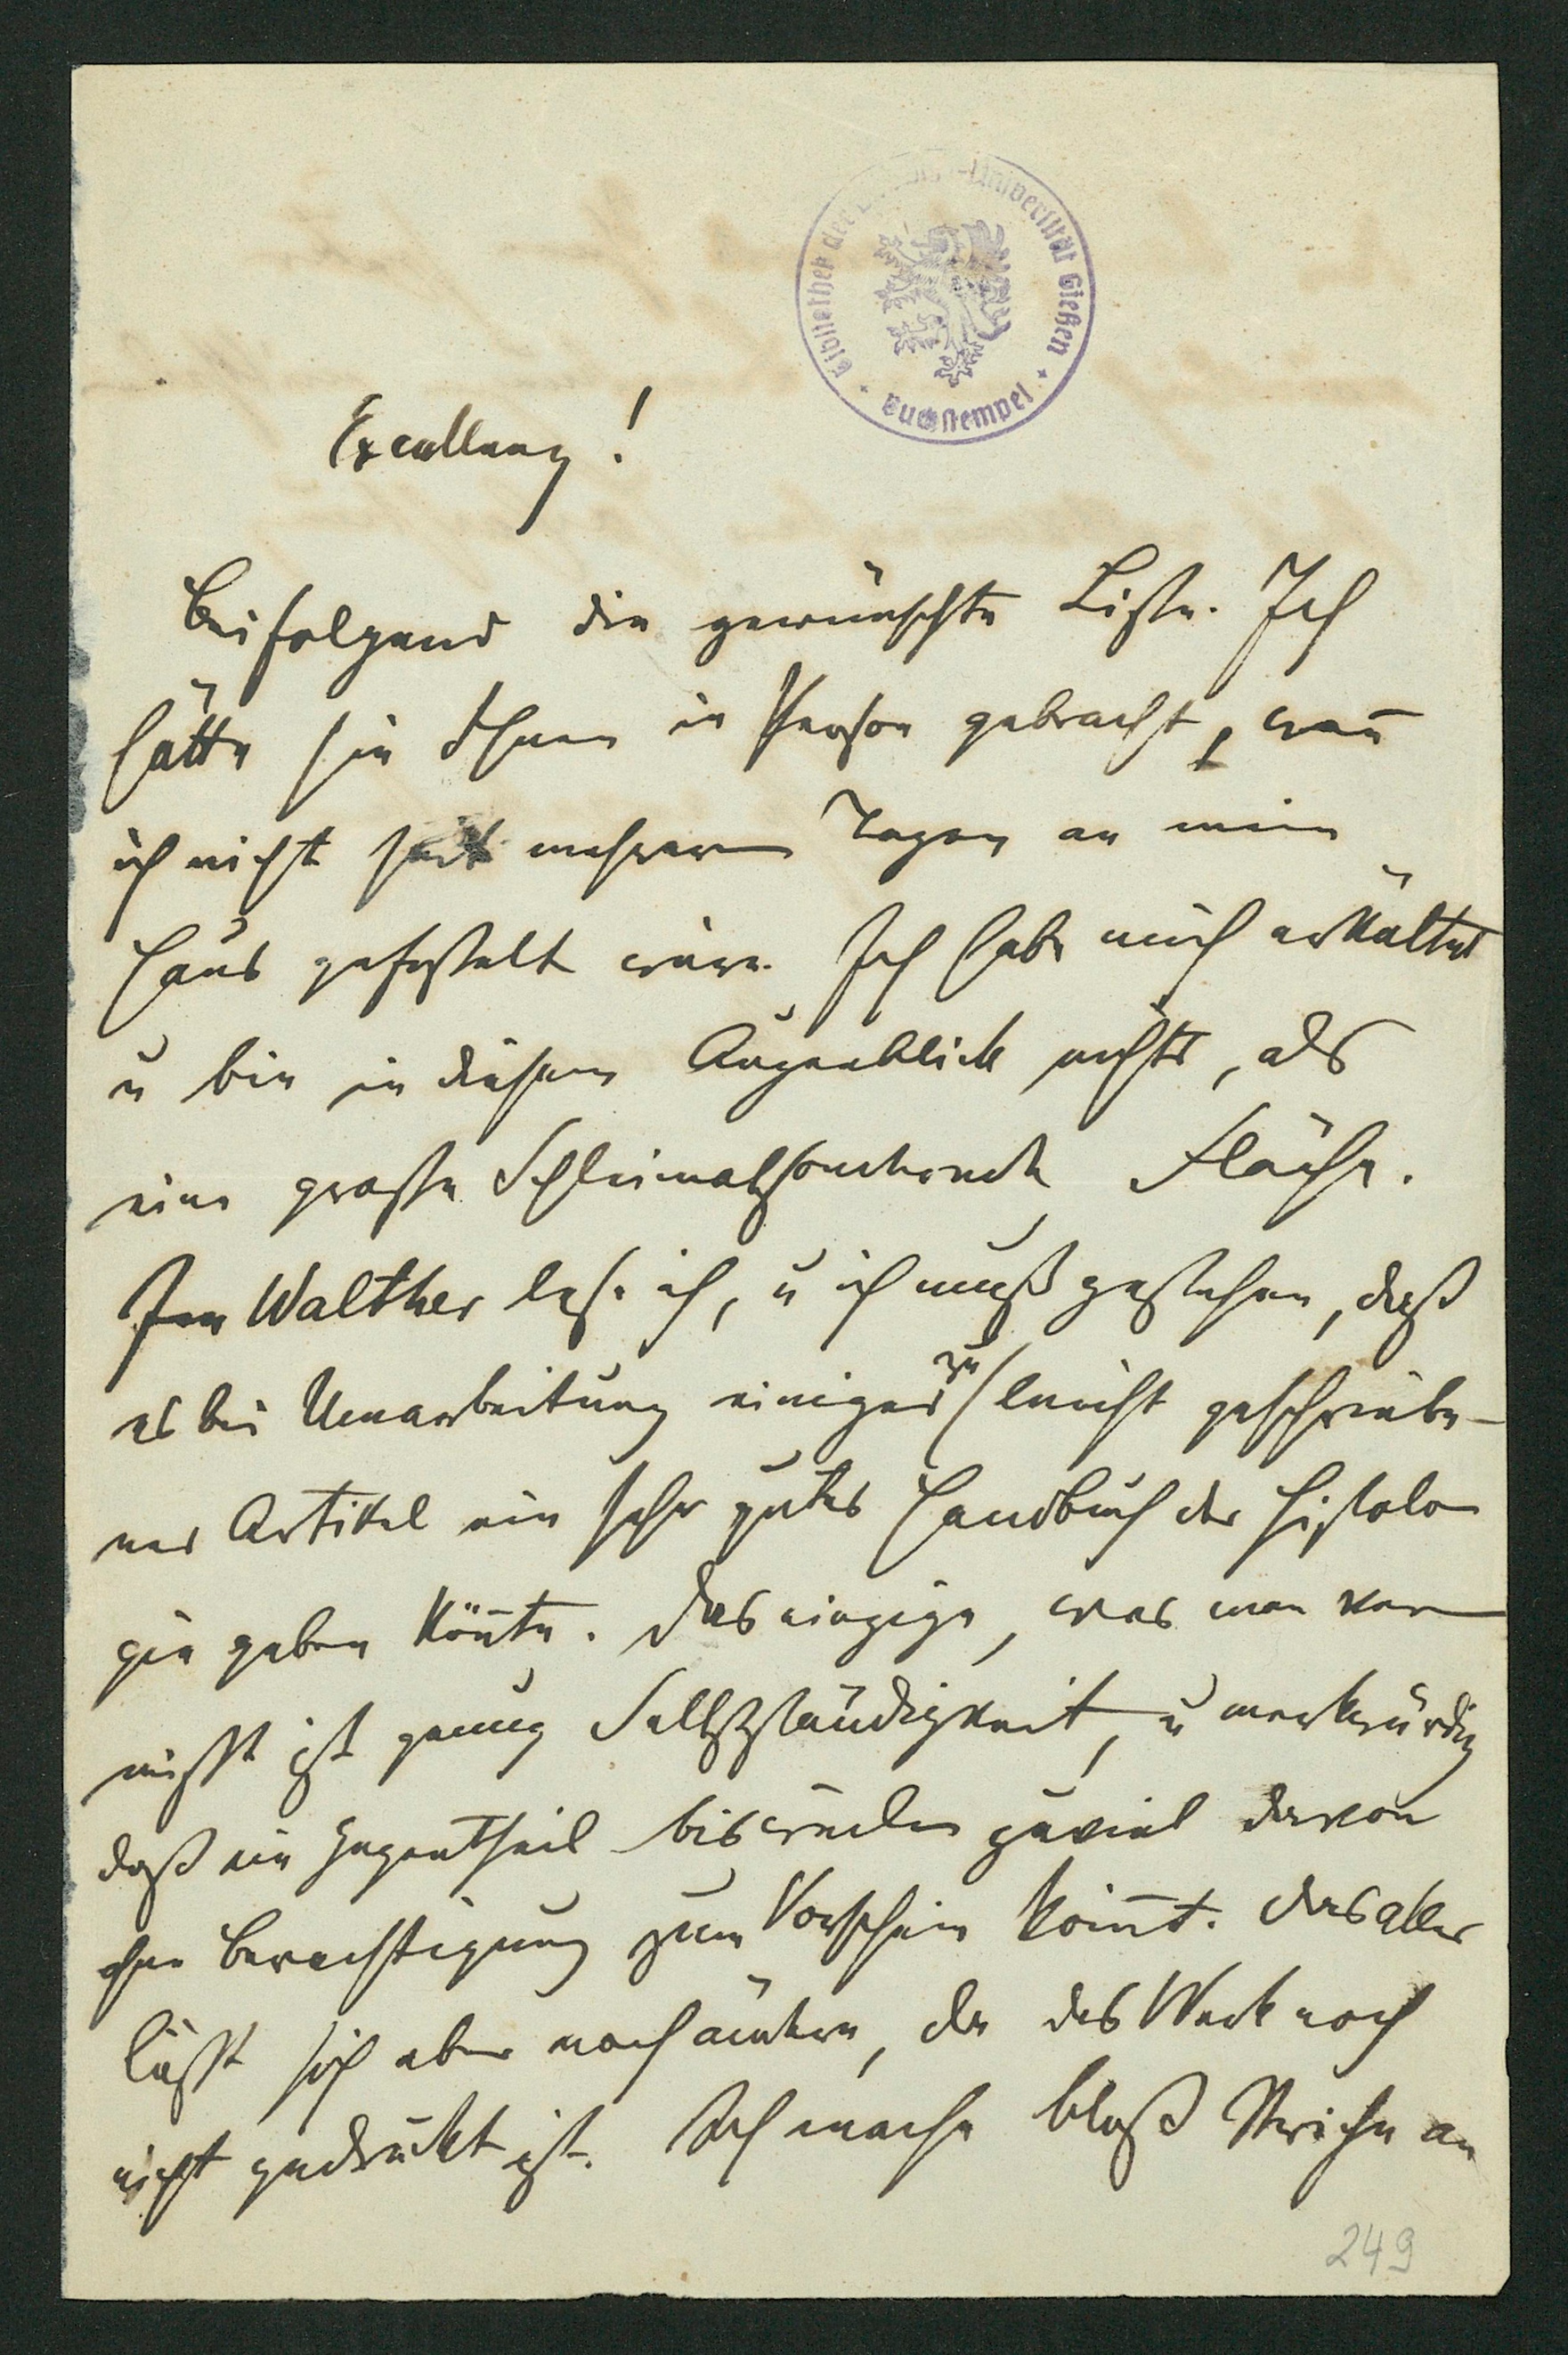 Bibliothek der Universität Gießen
Buchstempel
Excellenz!
Beifolgend die gewünschte Liste. Ich
hätte sie Ihnen in Person gebracht, weñ
ich nicht seit mehreren Tagen an mein
Haus gefesselt wäre. Ich habe mich erkältet
u bin in diesem Augenblick nichts, als
eine große Schleimabsondernde Fläche.
Im Walther lese ich, u ich muß gestehen, daß
es bei Umarbeitung einiger zu leicht geschriebe-
ner Artikel ein sehr gutes Handbuch der Histolo
gie geben köñte. Das einzige, was man ver
misst ist genug Selbstständigkeit, u merkwürdig
daß im Gegentheil bisweilen zuviel davon
ohne Berechtigung zum Vorschein kom̄t. Das alles
läßt sich aber noch ändern, da das Werk noch
nicht gedruckt ist. Ich mache bloß Striche an
249